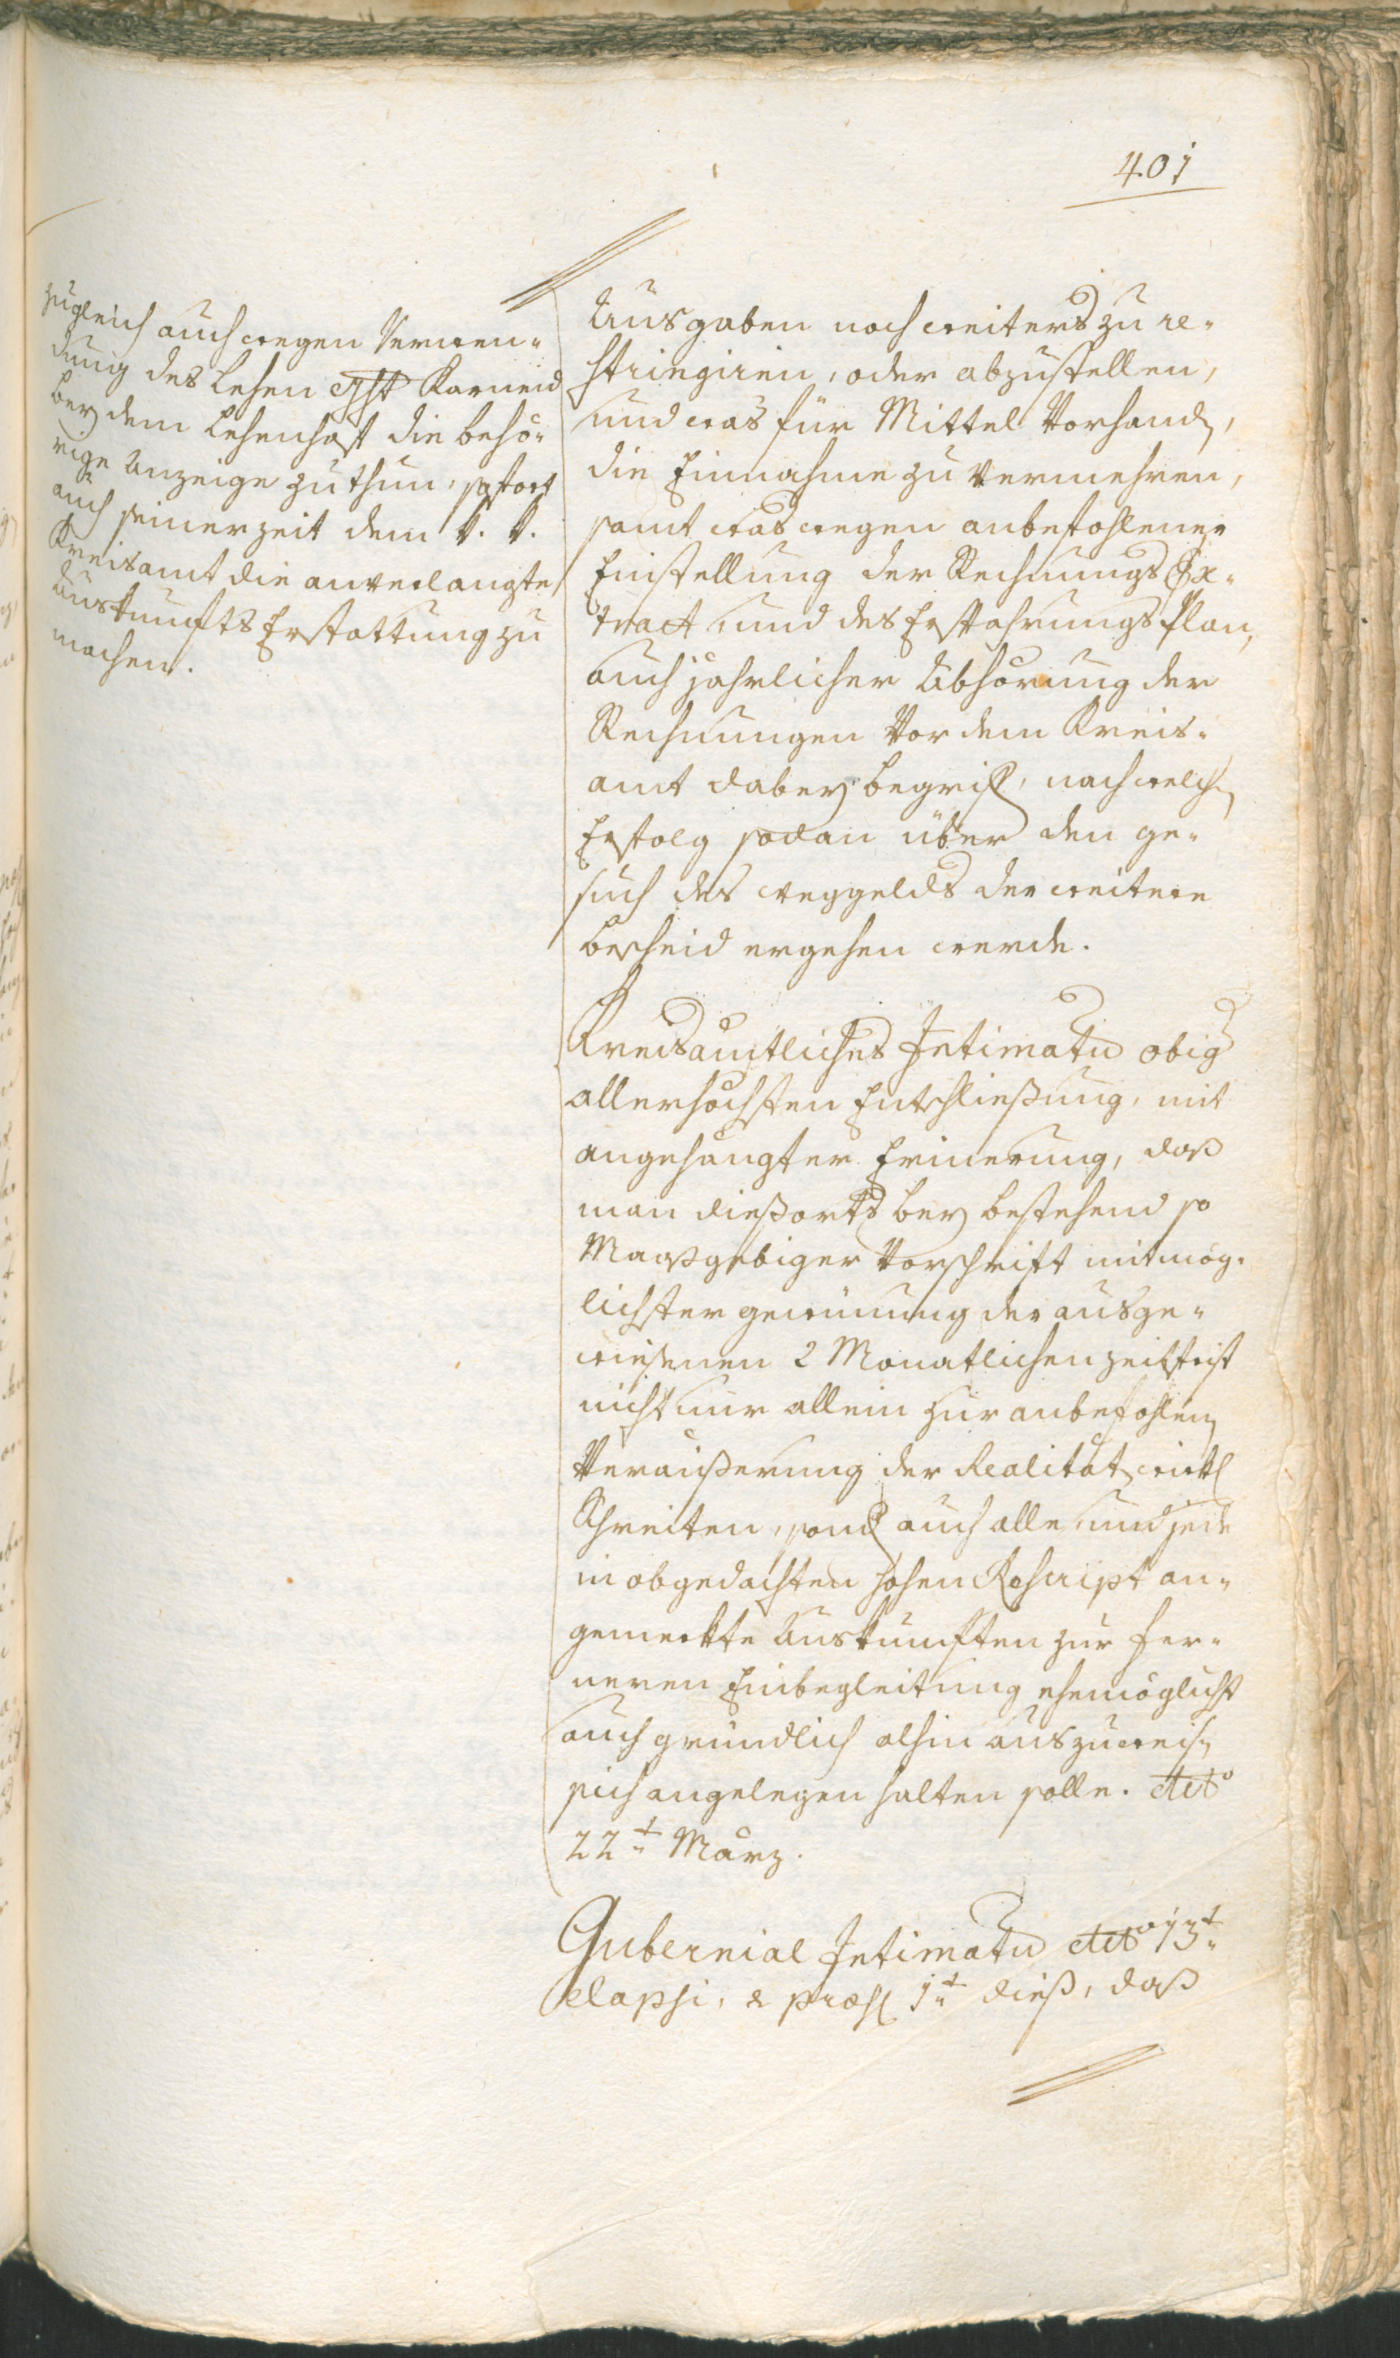 401
zugleich auch wegen Verwen-
dung des Lehen Ght Karneid
bey dem Lehenhoff die behö-
rige Anzeige zu thun, sofort
auch seinerzeit dem k. k.
Kreisamt die anverlangte
Auskunfts Erstattung zu
machen.
Ausgaben noch weiters zu re-
stringiren, oder abzustellen,
und was für Mittel vorhandn,
die Einnahme zu vermehren,
samt was wegen anbefohlener
Einstellung der Rechnungs Ex-
tract, und des Erfahrungs Plan,
auch jahrlicher Abhörung der
Rechnungen vor dem Kreis-
amt dabey begrif, nach welchn
Erfolg sodan über den ge-
such des Weggelds der weitere
bescheid ergehen werde.
Kreisamtliches Intimatu obig
allerhöchsten Entschließung, mit
angehängter Erinerung, daß
man dießorts bey bestehend so
Maaßgebiger Vorschrift mit mög-
lichster gewinnung der ausge-
wiesenen 2 Monatlichen zeitfrist
nicht nur allein zur anbefohlenn
Veräußerung der Realitat wirkl
Schreiten, sond auch alle und jede
in obgedachten hohen Rescript an-
gemerkte Auskunften zur fer-
neren Einbegleitung ehemöglichst
auch gründlich alhin auszuweisn
sich angelegen halten solle. dto
22t März.
Gubernial Intimatu dto 13t
elapsi, & præs 1t dieß, daß